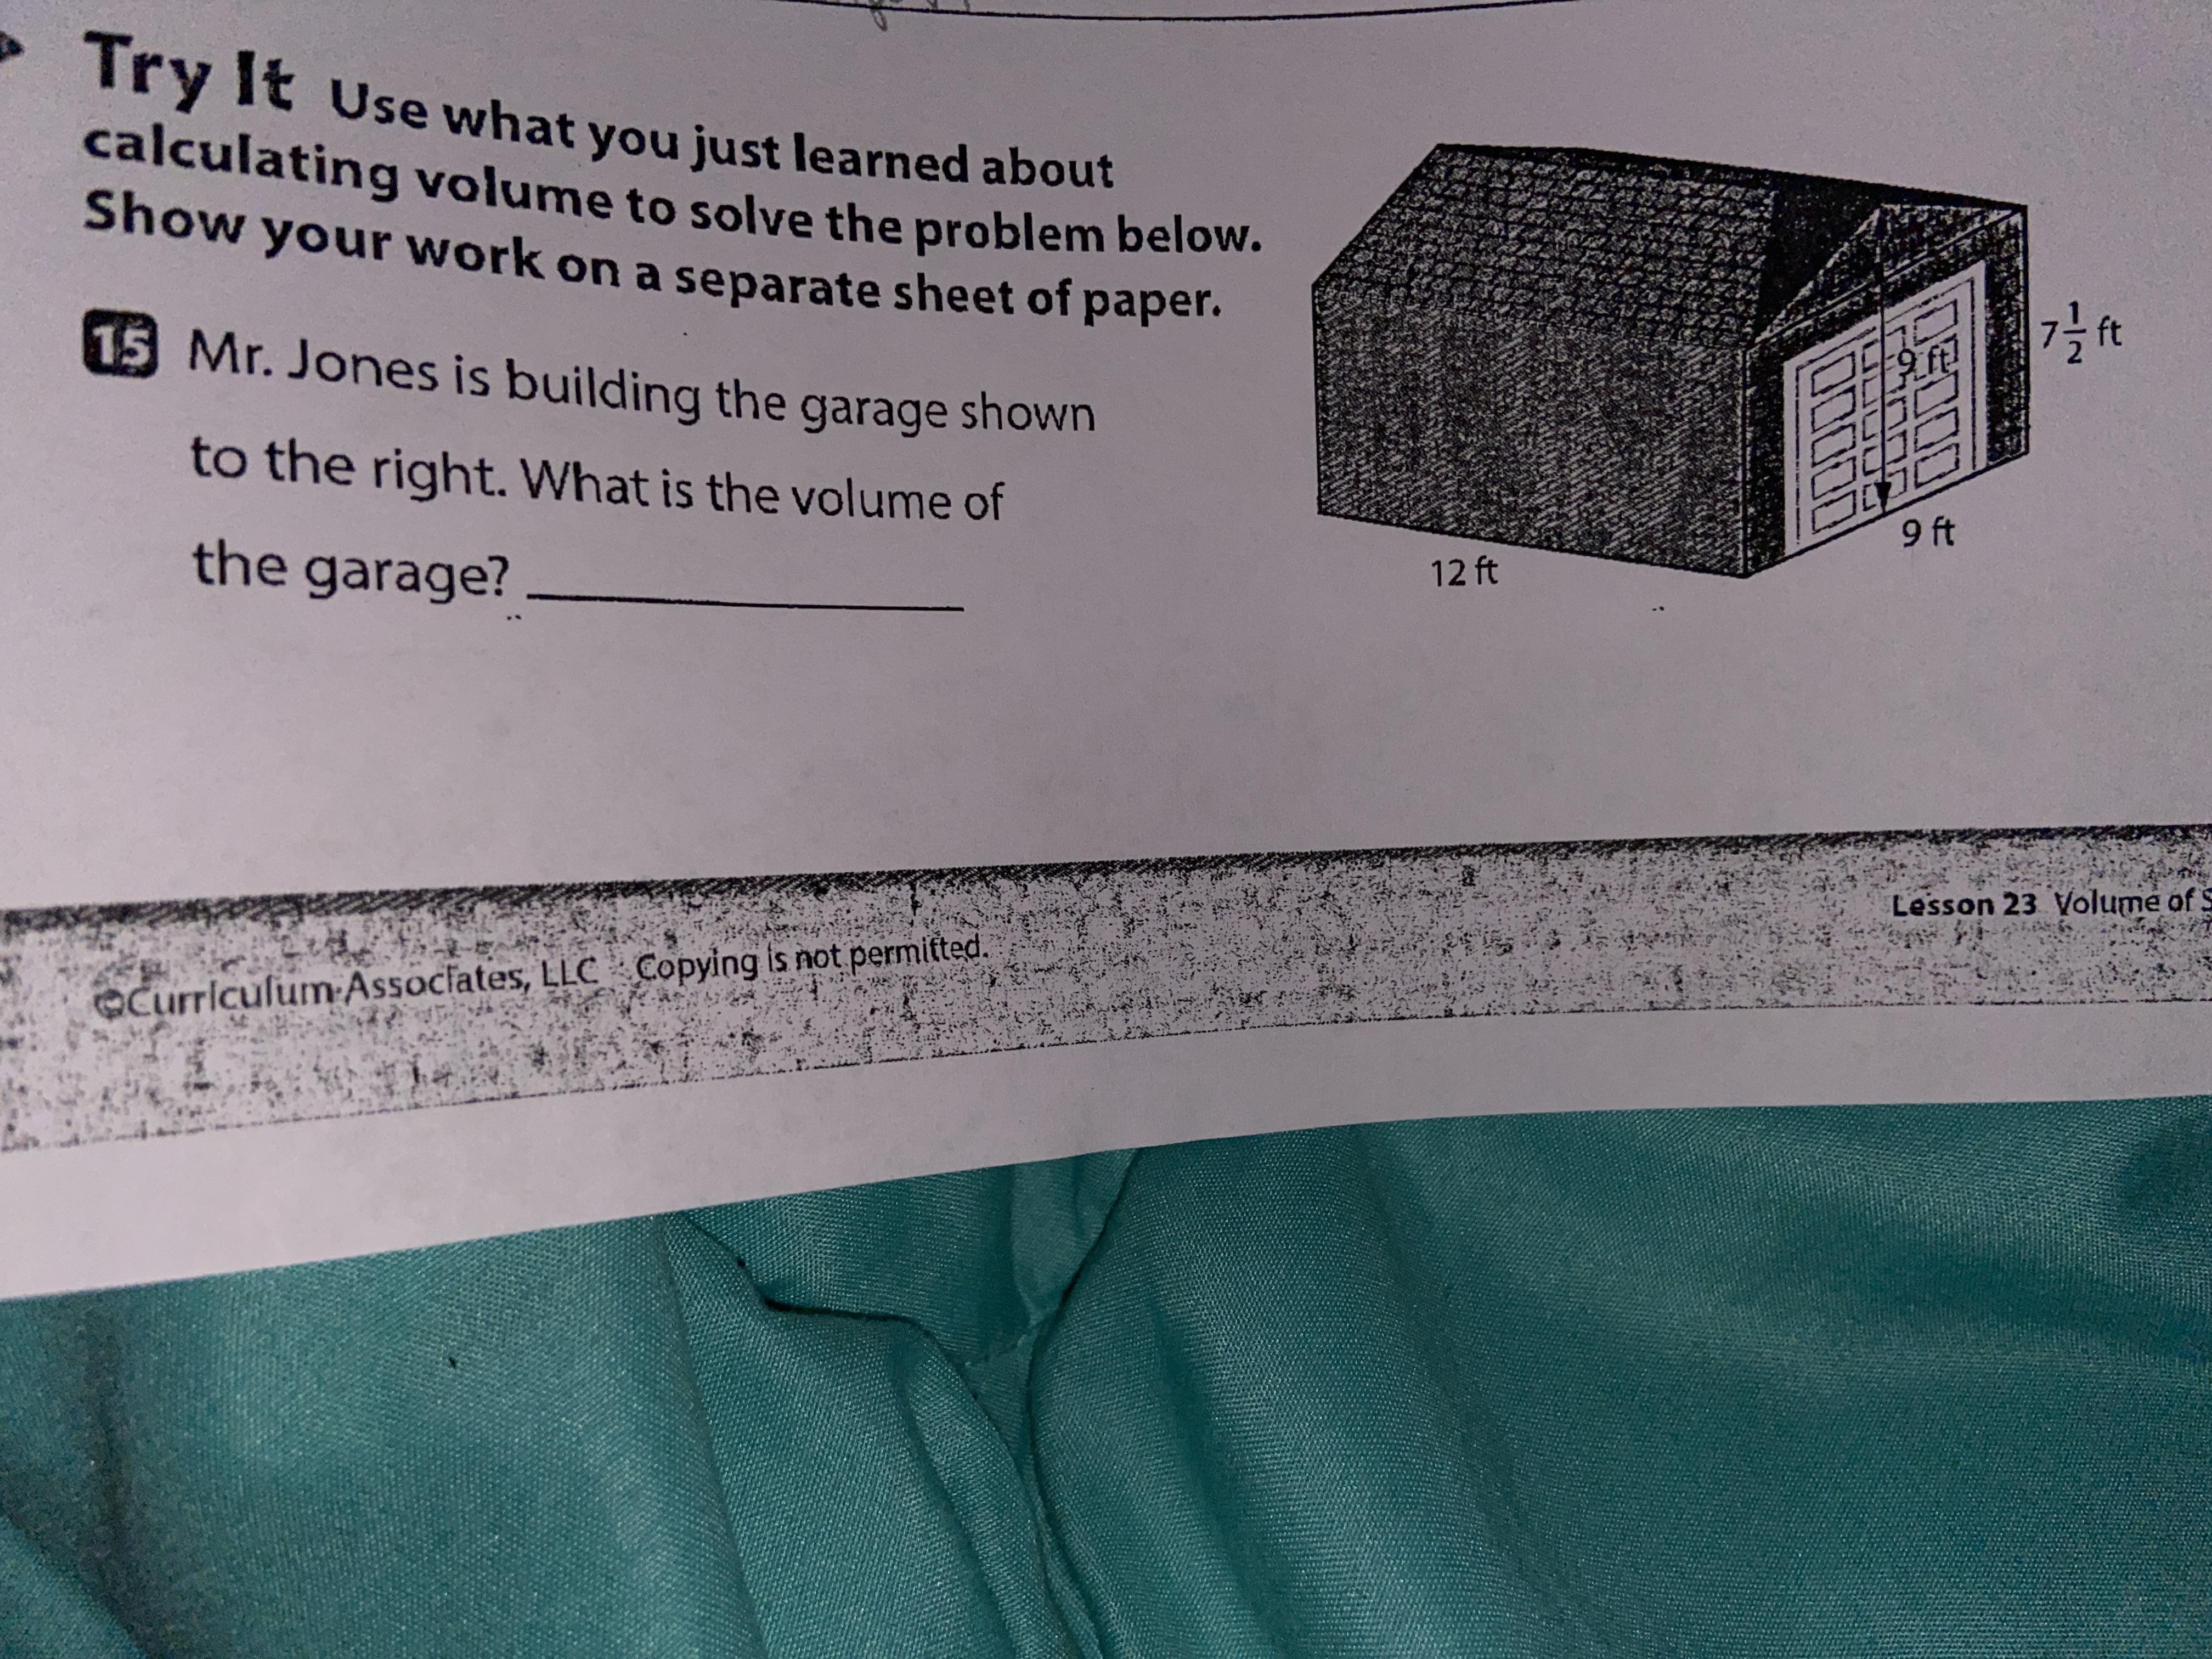 Try It Use what you just learned about
calculating volume to solve the problem below.
Show your work on a separate sheet of paper.
15 Mr. Jones is building the garage shown
to the right. What is the volume of
the garage?
7 1/2 ft
9 ft
9 ft
12 ft
Lesson 23 Volume of
©Curriculum Associates, LLC Copying is not permitted.